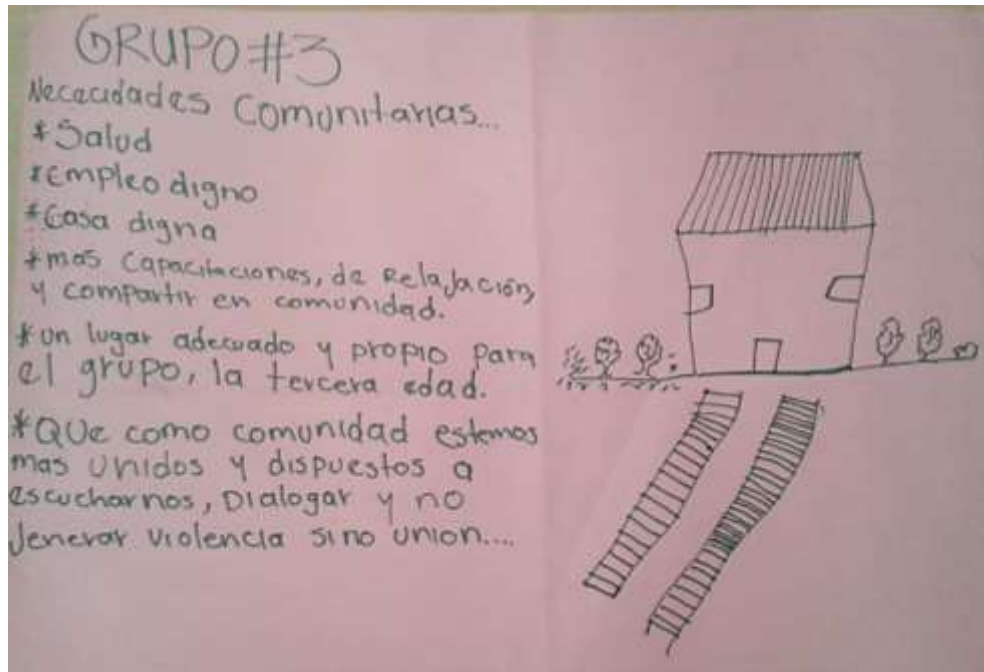 GRUPO#3
Nececidades Comunitarias...
*Salud
*empleo digno
*Casa digna
*mas Capacitaciones, de Relajación,
y compartir en comunidad.
*un lugar adecuado y propio para
el grupo, la tercera edad.
*QUe como comunidad estemos
mas unidos y dispuestos a
escucharnos, Dialogar y no
Jenerar violencia sino union....